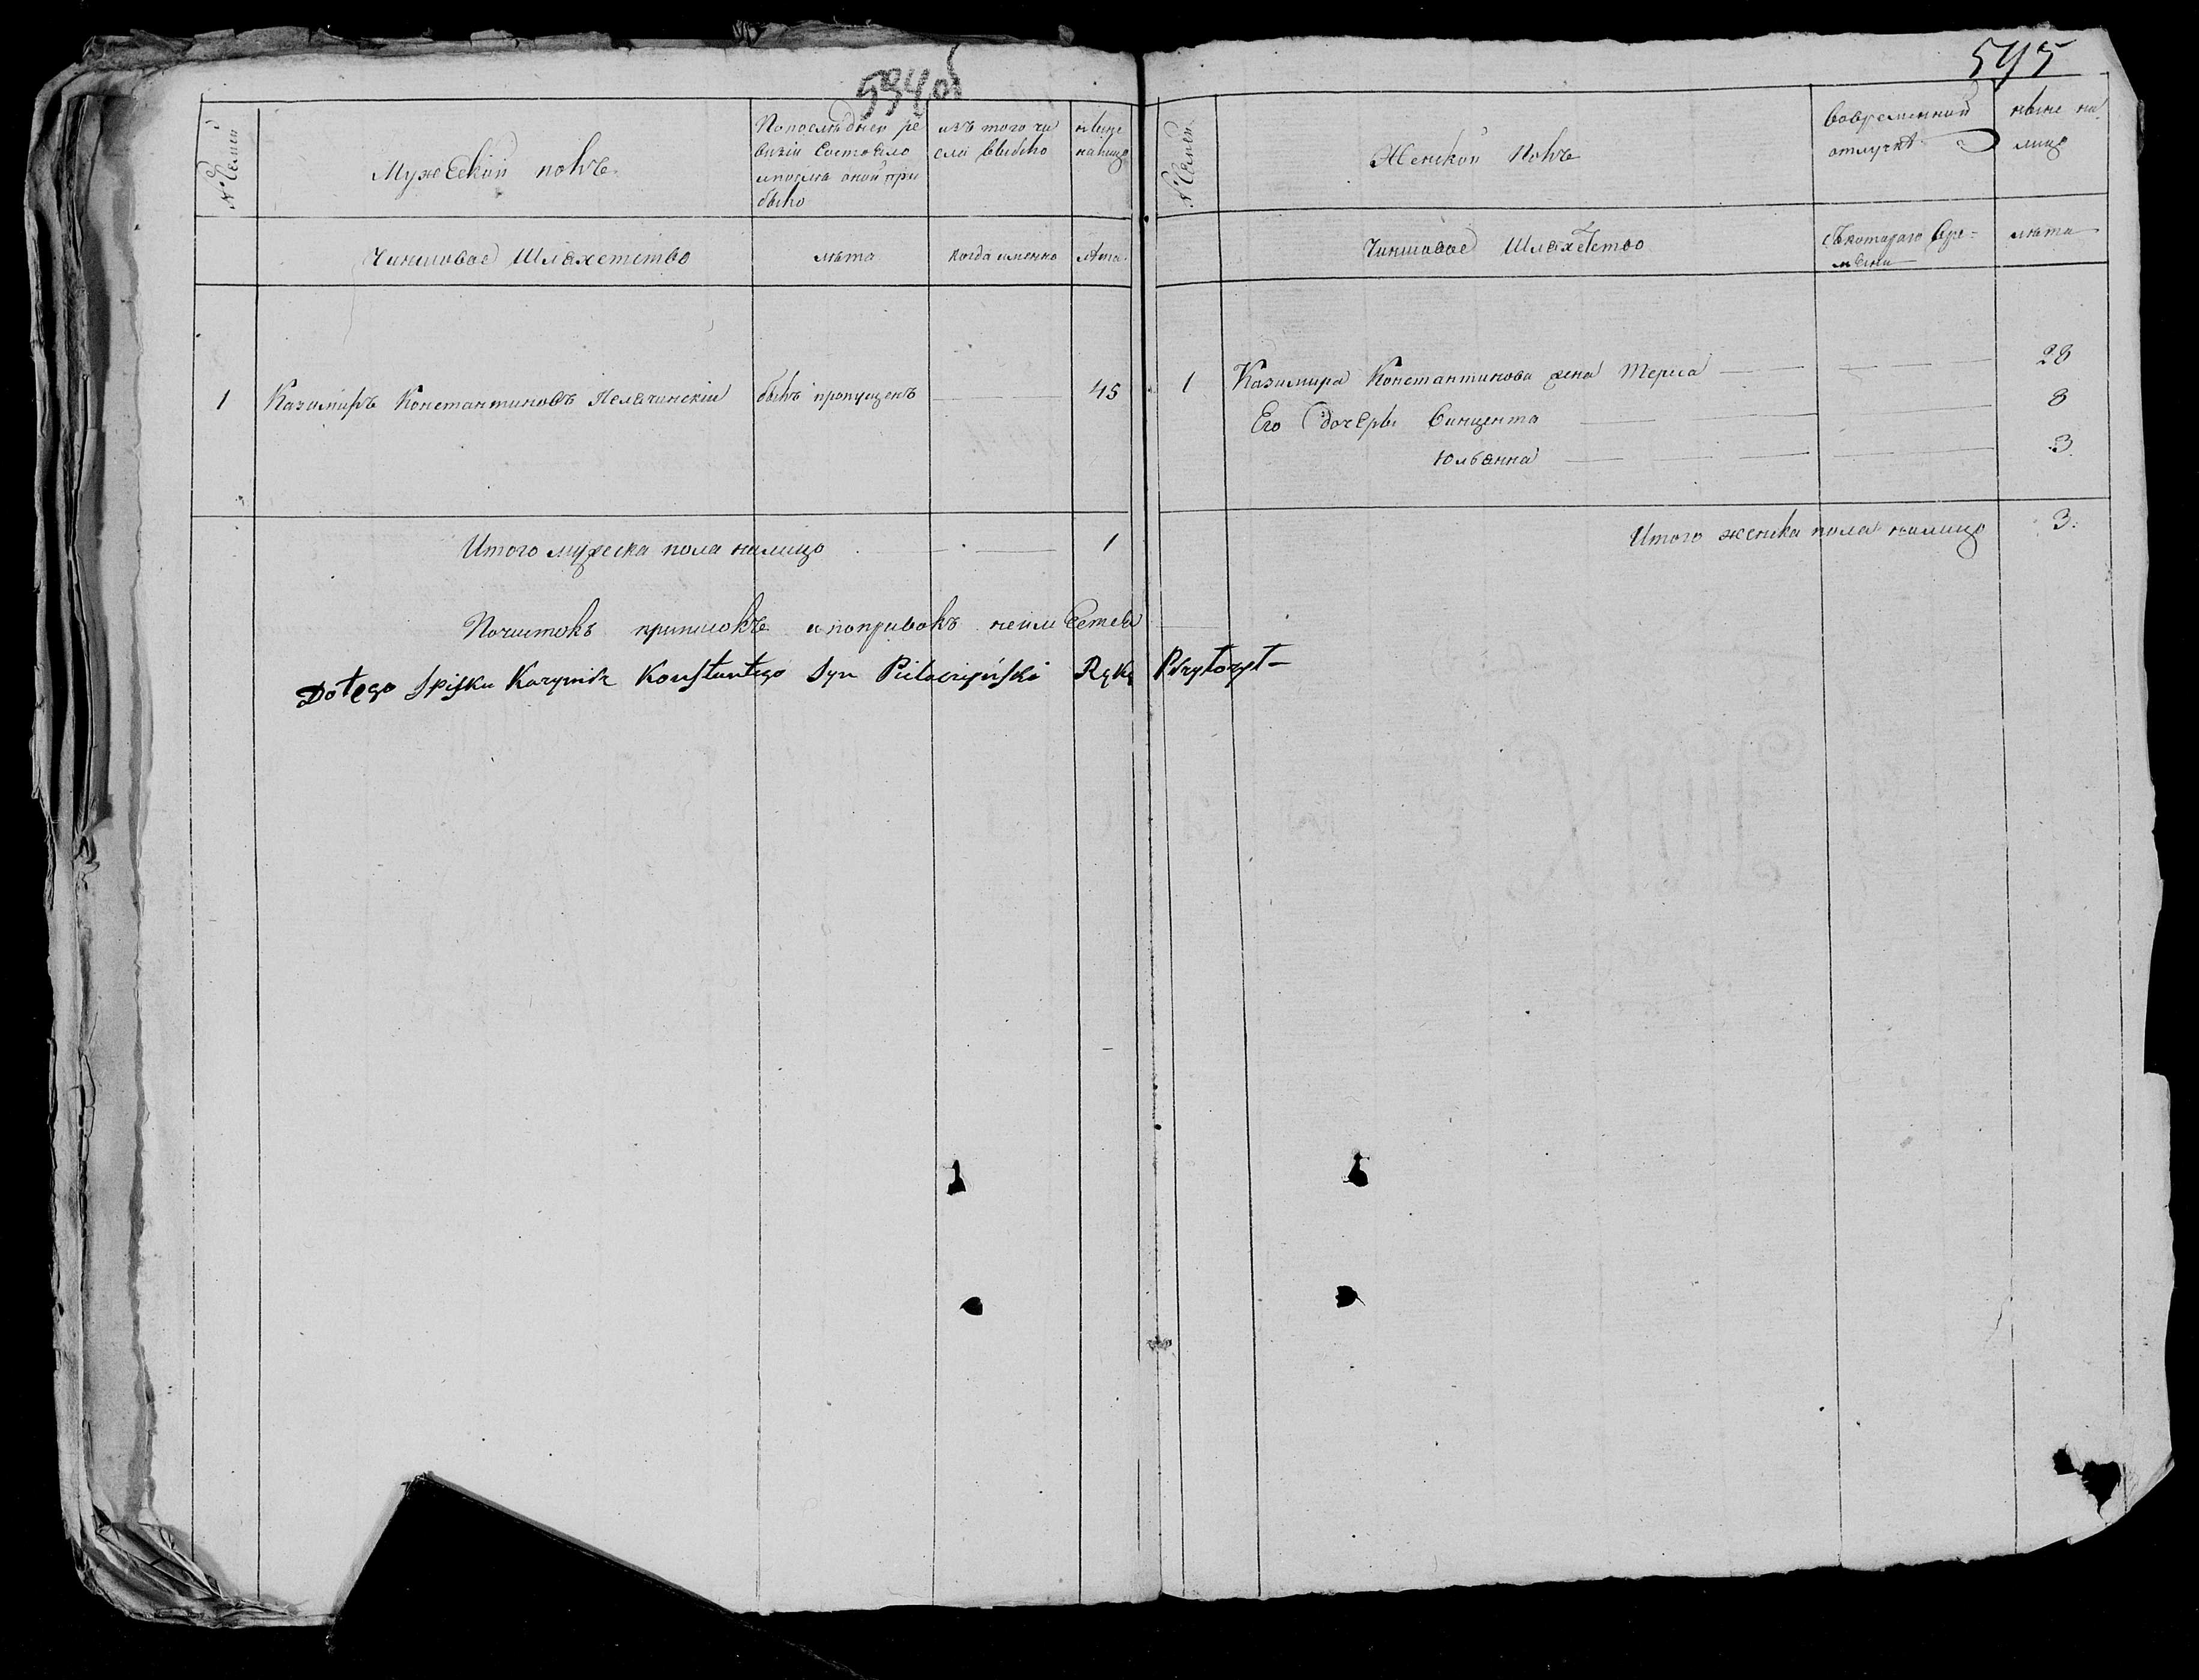 594об
№ Семей
Мужеский полъ
По последней ре
визіи состояло
и после оной при
было
изъ того чи
сла выбыло
ныне
налицо
Чиншовое Шляхетство
лета
когда именно
лета
1 Казимиръ Константиновъ Пелячинскій былъ пропущенъ 45
Итого мужеска пола налицо 1
Почистокъ приписокъ и поправокъ неимеется
Do tego Spisku Kazymirz Konstantego Syn Pilaczyński Ręką Przyłożył
595
№ Семей
Женской Полъ
Вовременной
отлучке
ныне на
лицо
Чиншовое Шляхетство
съкотораго вре-
мени
лета
1 Казимира Константинова жена Тереса 28
Его дочери Винцента 8
Юльянна 3
Итого женска пола налицо 3.